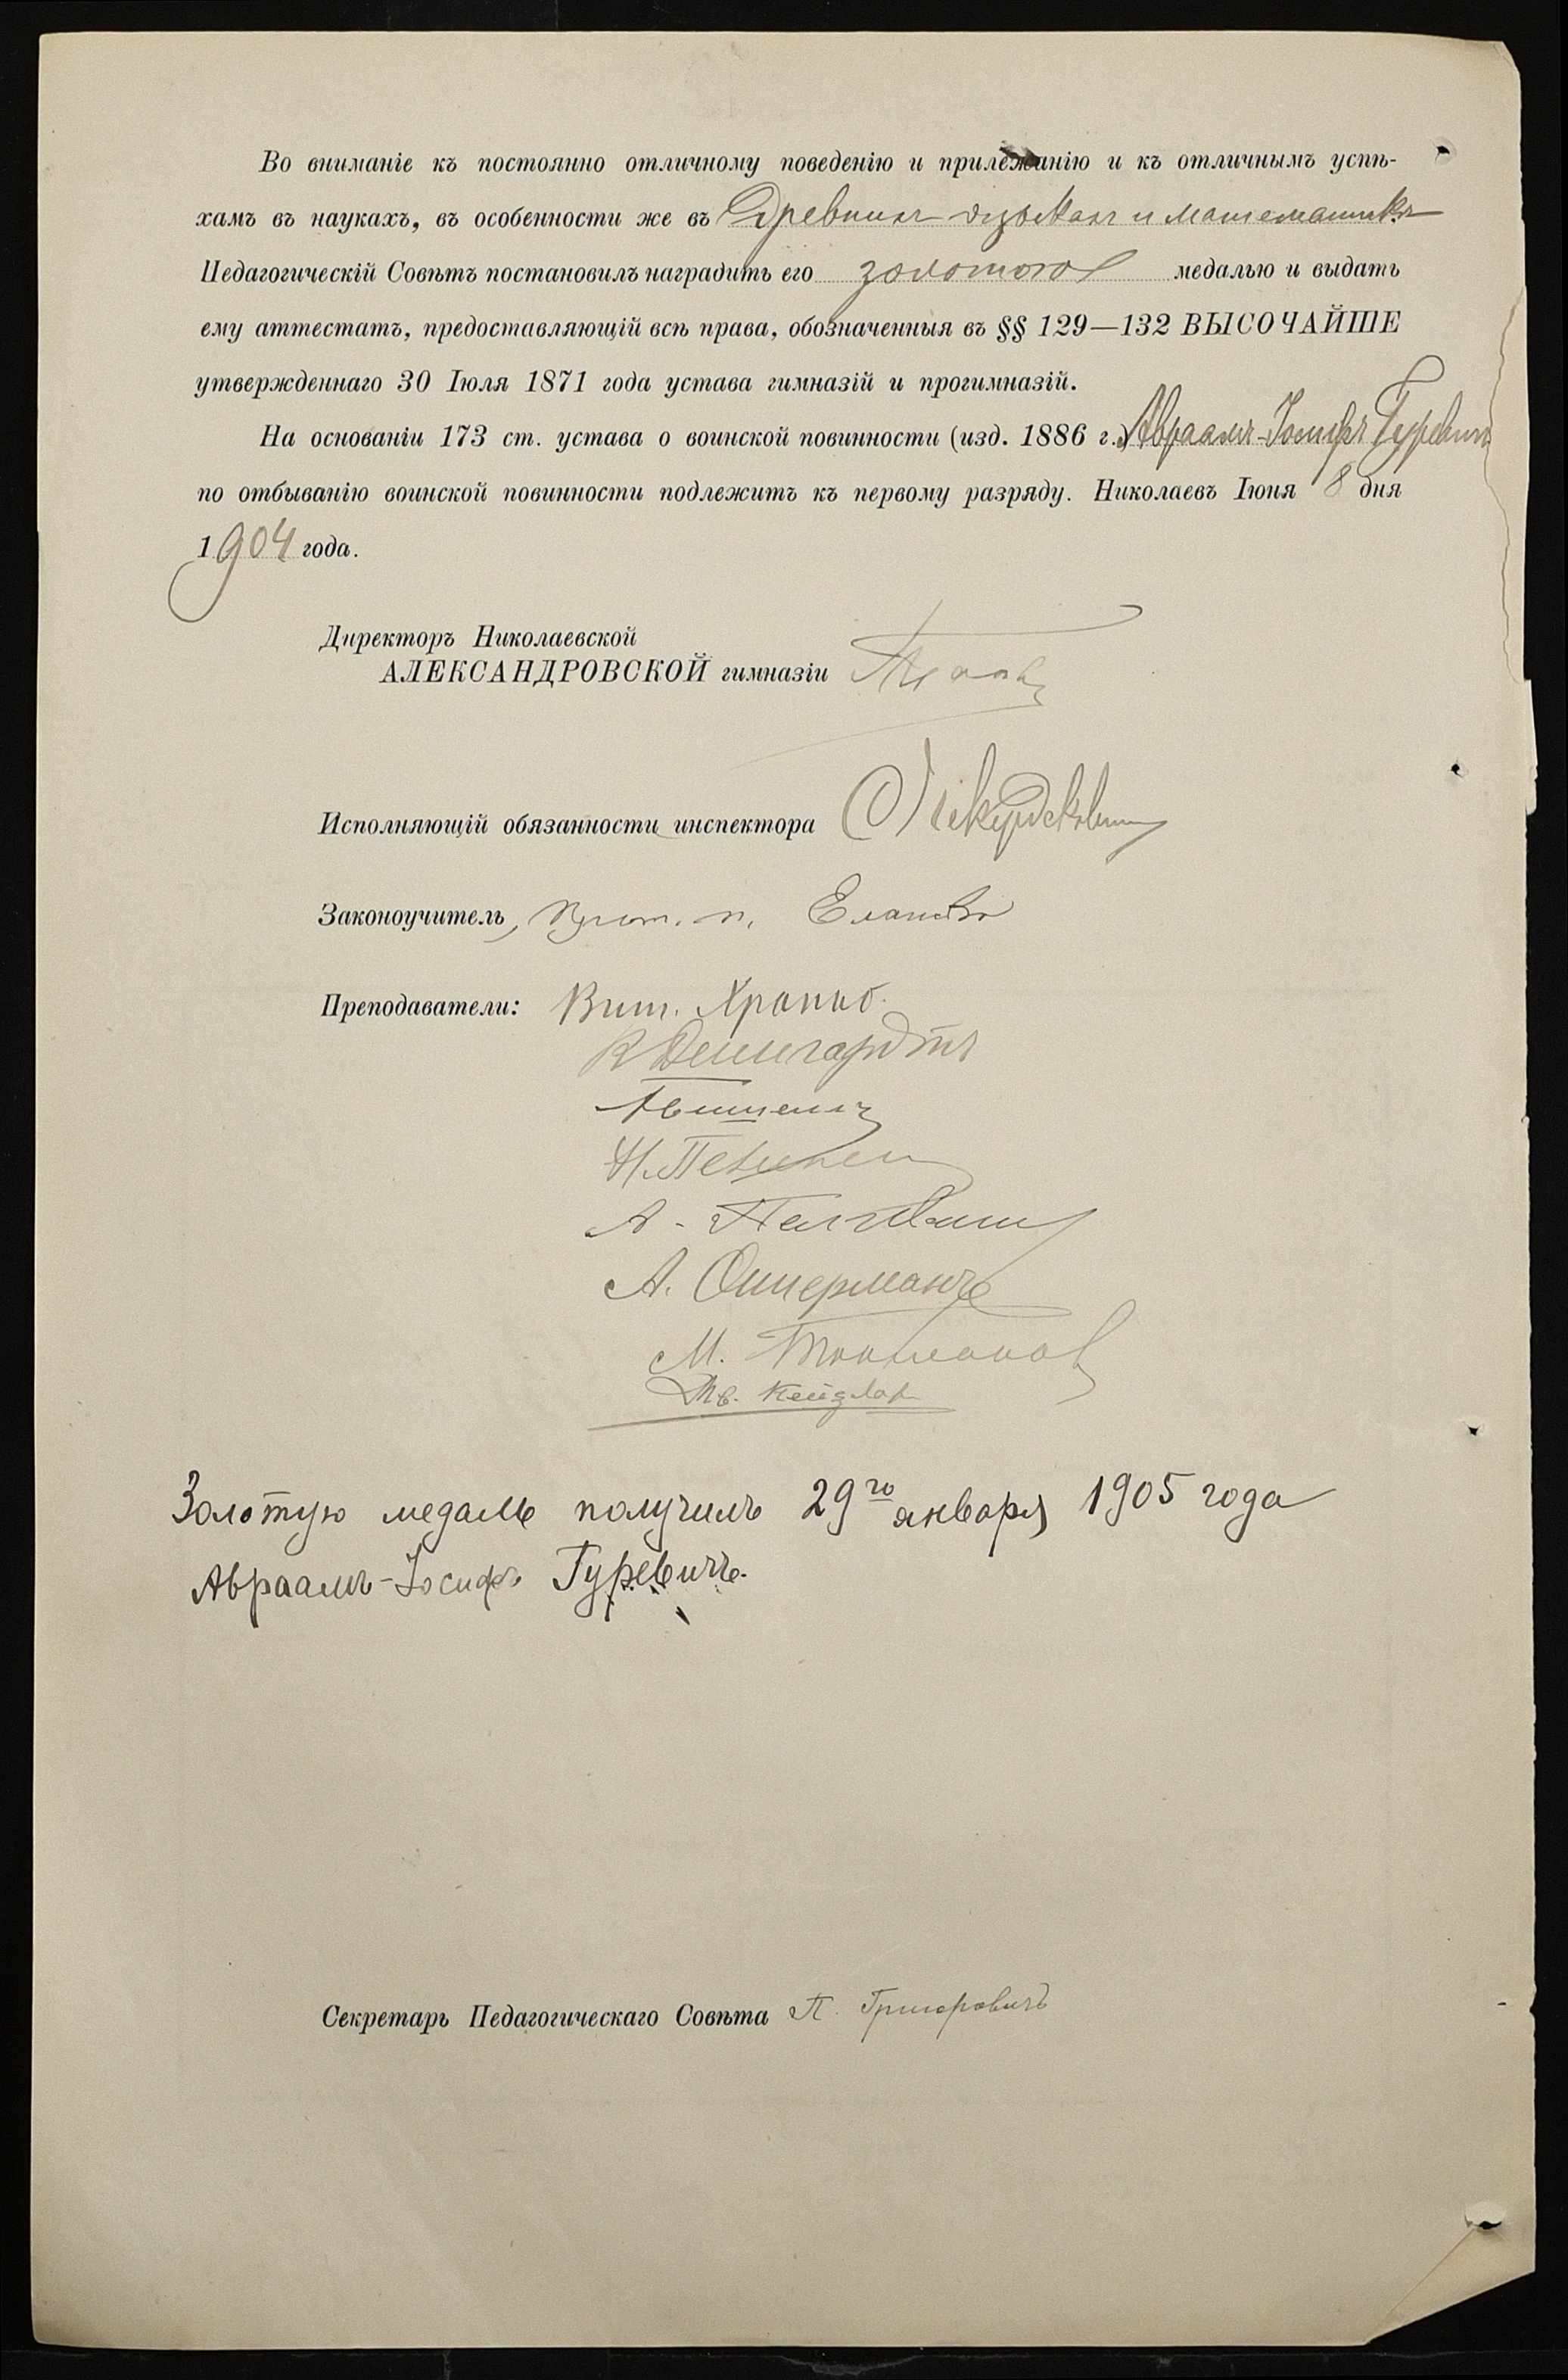 Во вниманіе къ постоянно отличному поведенію и прилежанію и къ отличнымъ успѣ-
хамъ въ наукахъ, въ особенности же въ древнихъ языкахъ и математикѣ
Педагогическій Совѣтъ постановилъ наградить его золотою медалью и выдать
ему аттестатъ, предоставляющій всѣ права, обозначенныя въ §§ 129—132 ВЫСОЧАЙШЕ
утвержденнаго 30 Іюля 1871 года устава гимназій и прогимназій.
На основаніи 173 ст. устава о воинской повинности (изд. 1886 г.) Авраамъ-Іосифъ Гуревичъ
по отбыванію воинской повинности подлежитъ къ первому разряду. Николаевъ Іюня 8 дня
1904 года.
Директоръ Николаевской
АЛЕКСАНДРОВСКОЙ гимназіи
Исполняющій обязанности инспектора
Законоучитель, Прот. п.
Преподаватели: Вит.
А.
А. Ошерманъ
М.
Золотую медаль получилъ 29го января 1905 года
Авраамъ-Іосифъ Гуревичъ.
Секретарь Педагогическаго Совѣта П. Григоровичъ